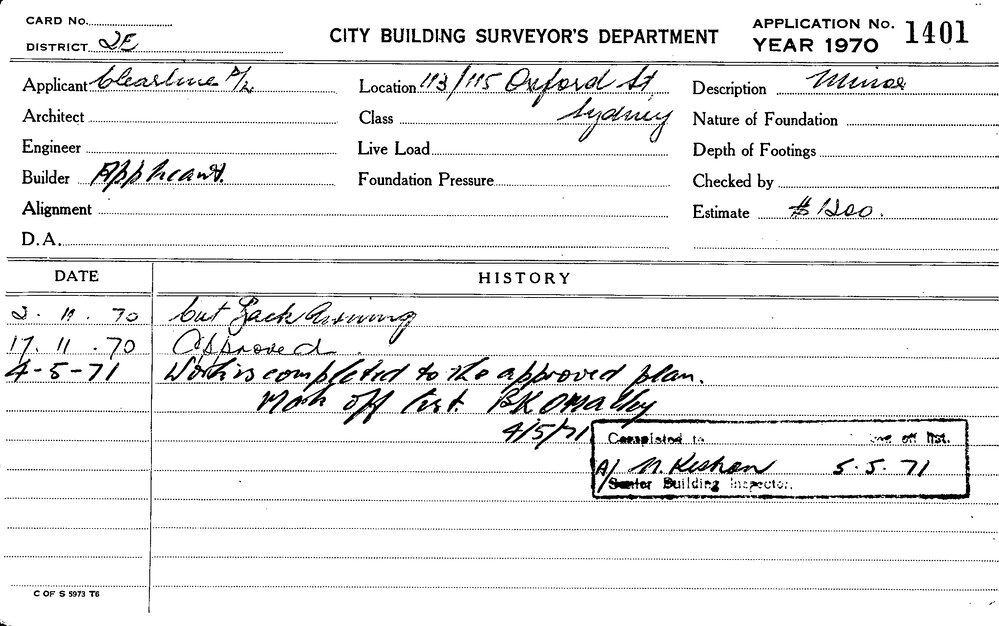 CARD No.
DISTRICT 2E
CITY BUILDING SURVEYOR'S DEPARTMENT
APPLICATION No. 1401
YEAR 1970
Applicant Clearline P/L
Location 113/115 Oxford St
Description Minor
Architect
Class Sydney
Nature of Foundation
Engineer
Live Load
Depth of Footings
Builder Applicant.
Foundation Pressure
Checked by
Alignment
Estimate $1200.
D.A.
DATE HISTORY
2. 11. 70 Cut back Awning
17. 11. 70 Approved.
4-5-71 Work is completed to the approved plan.
Mark off List. BK OMalley
4/5/71
Completed to off list.
A/ N. 5.5.71
Senior Building Inspector.
C OF S 5973 T6